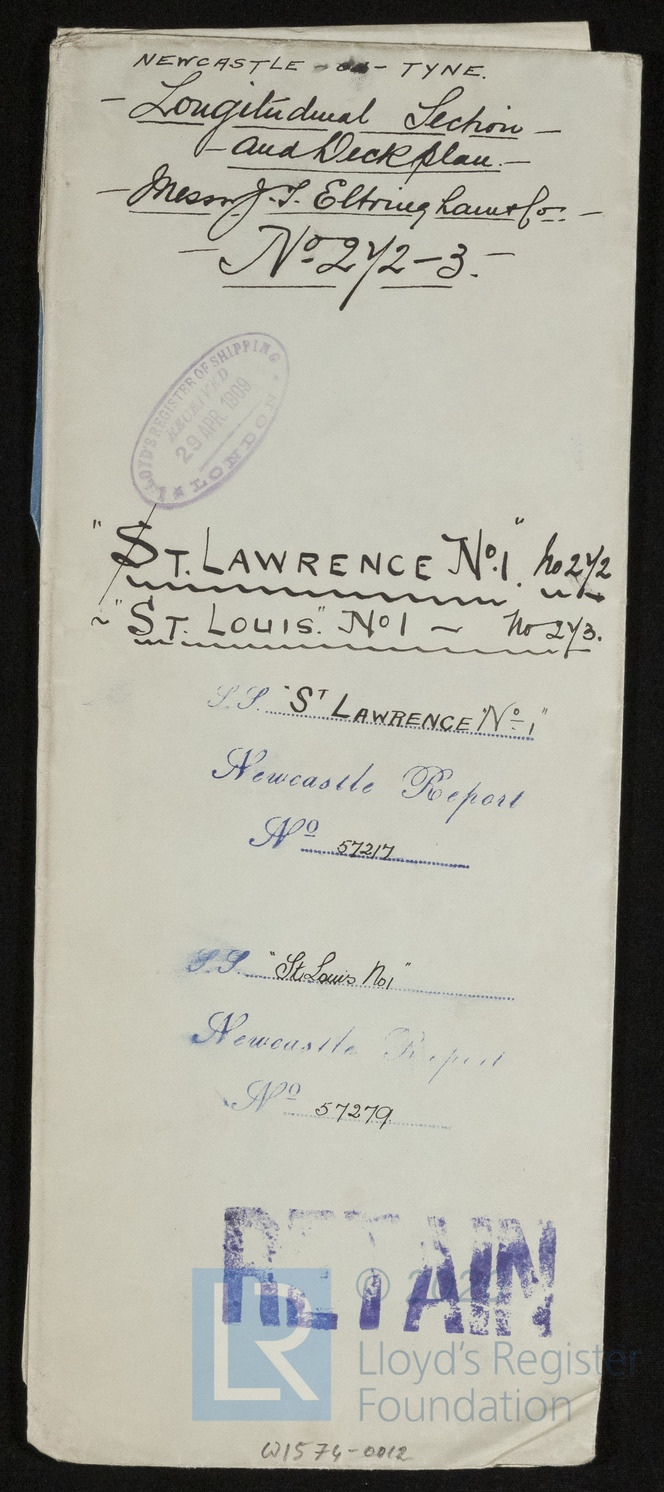 NEWCASTLE - on - TYNE.
- Longitudinal Section -
- and Deck plan. -
- Messrs J. T. Eltringham & Co. -
- No 272-3. -
LLOYD'S REGISTER OF SHIPPING
RECEIVED
29 APR. 1909
LONDON
"ST. LAWRENCE No. 1". No 272
~ "ST. LOUIS". No 1 ~ No 273.
S.S. "ST LAWRENCE No 1"
Newcastle Report
No 57217
S.S. "St. Louis No 1"
Newcastle Report
No 57279
RETAIN
LR
Lloyd's Register
Foundation
W1574-0012